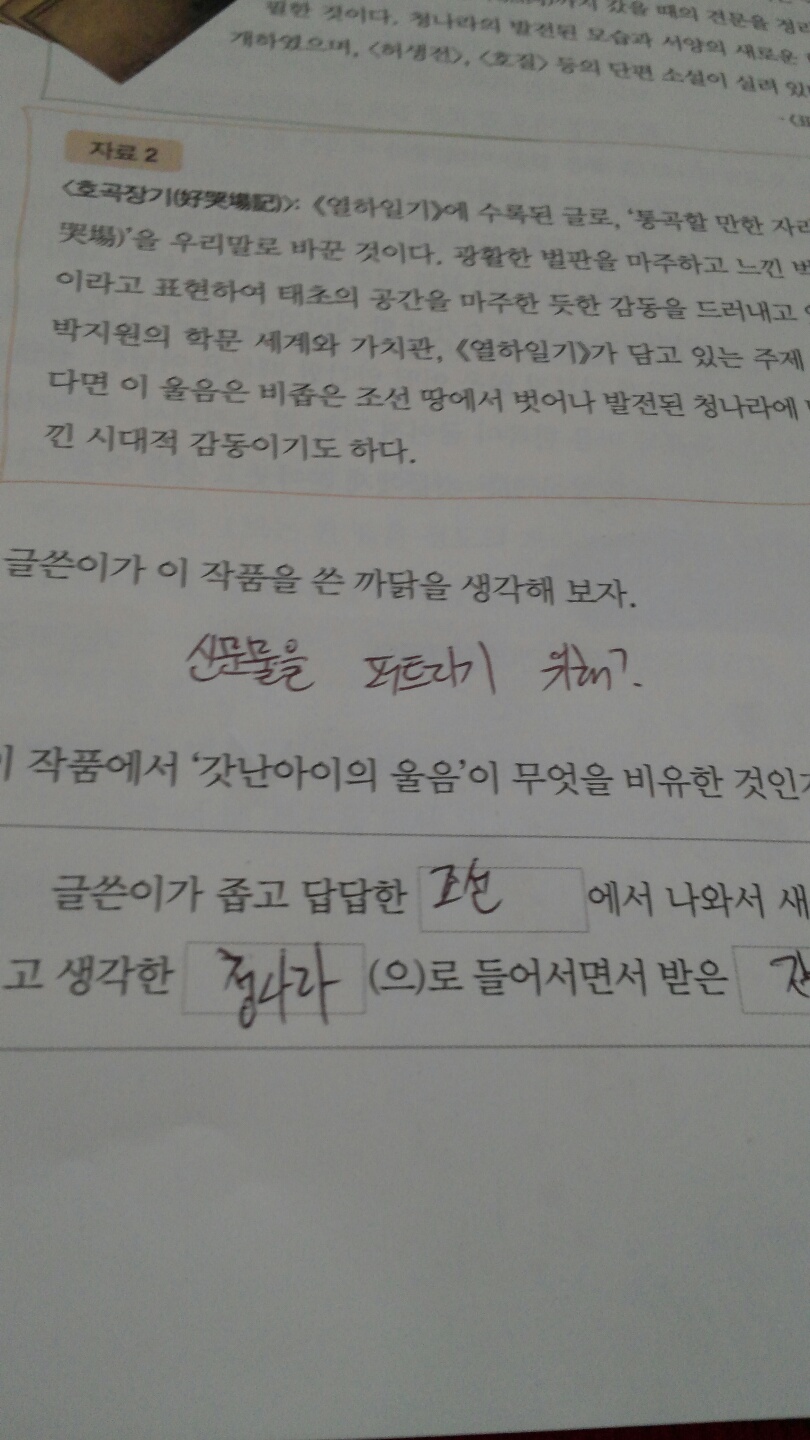 갔을 때의 견문을 정리
필한 것이다. 청나라의 발전된 모습과 서양의 새로운
개하였으며, 〈허생전〉, 〈호질〉 등의 단편 소설이 실려 있
자료 2
〈호곡장기(好哭場記)〉: 《열하일기》에 수록된 글로, ‘통곡할 만한 자리
哭場)’을 우리말로 바꾼 것이다. 광활한 벌판을 마주하고 느낀
이라고 표현하여 태초의 공간을 마주한 듯한 감동을 드러내고
박지원의 학문 세계와 가치관, 《열하일기》가 담고 있는 주제
다면 이 울음은 비좁은 조선 땅에서 벗어나 발전된 청나라에
낀 시대적 감동이기도 하다.
글쓴이가 이 작품을 쓴 까닭을 생각해 보자.
신문물을 퍼트리기 위해?.
이 작품에서 ‘갓난아이의 울음’이 무엇을 비유한 것인
글쓴이가 좁고 답답한 조선 에서 나와서 새
고 생각한 청나라 (으)로 들어서면서 받은